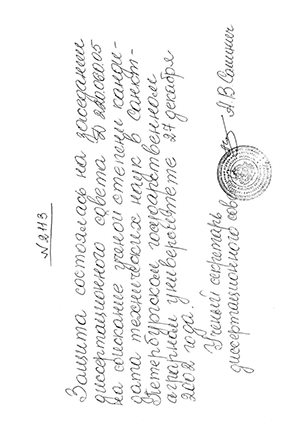 N 2113
Защита состоялась на заседании
диссертационного совета Д 220.060.05
на соискание ученой степени канди-
дата технических наук в Санкт-
Петербургском государственном
аграрном университете 27 декабря
2002 года.
Ученый секретарь
диссертационного сов
А.В